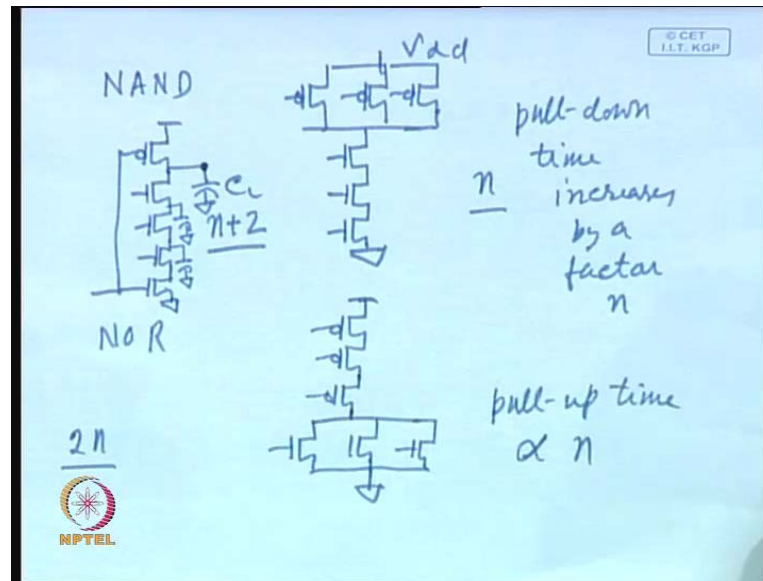 © CET
I.I.T. KGP
NAND
Vdd
CL
n+2
n
pull-down
time
increases
by a
factor
n
NOR
pull-up time
∝ n
2n
NPTEL